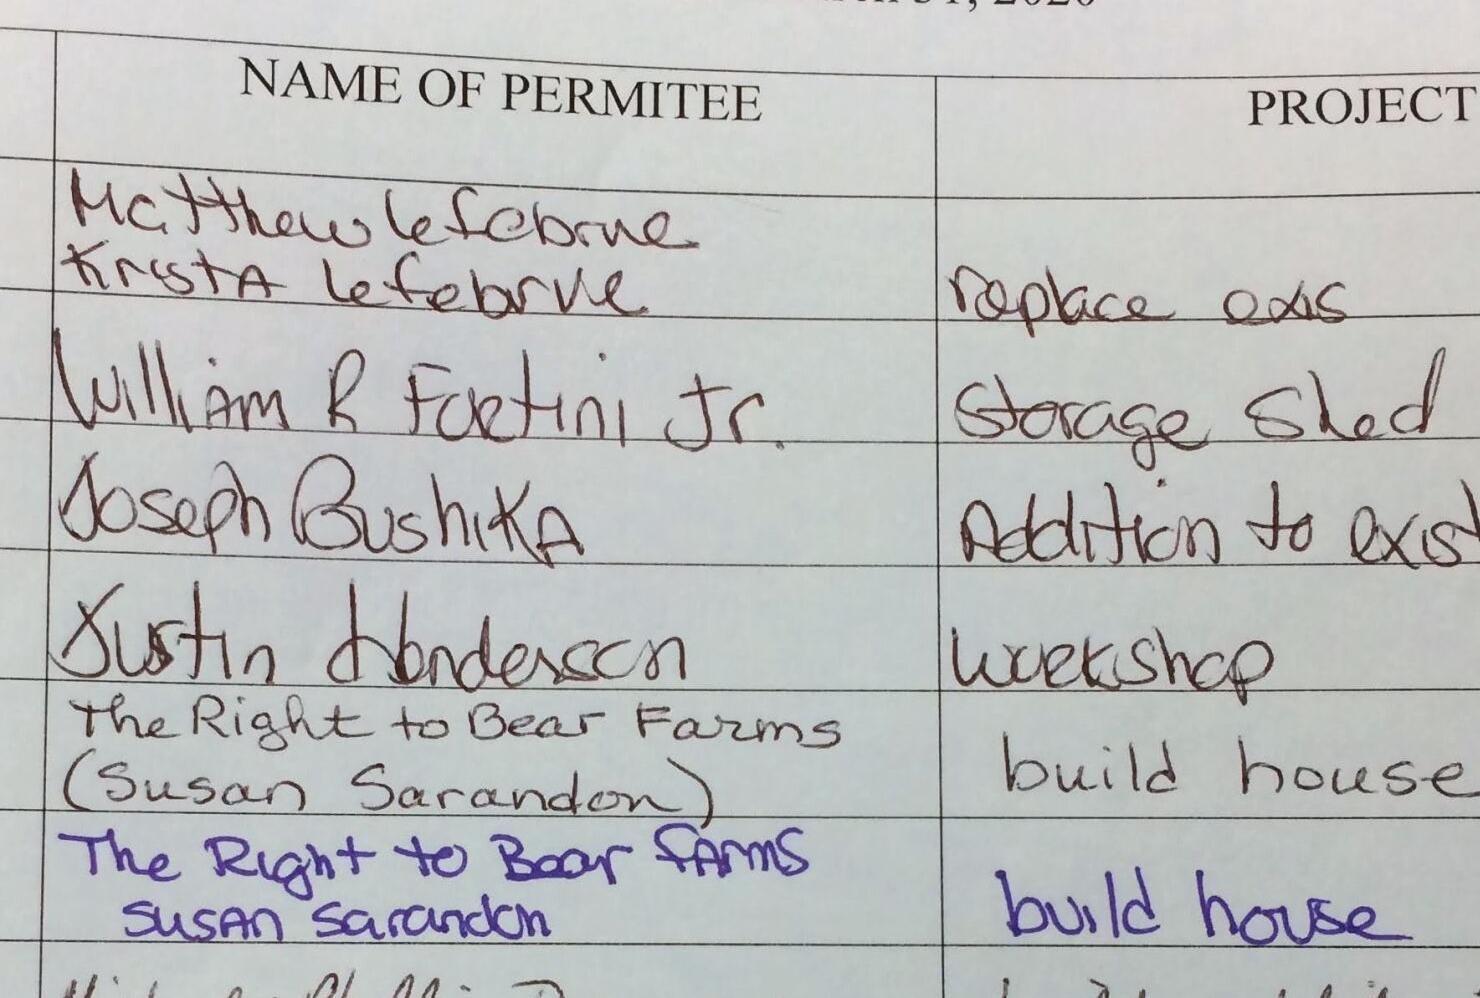 2020
NAME OF PERMITEE
PROJECT
Matthew Lefebrve
Krista Lefebrve
replace exis
William R Fortini Jr.
Storage Shed
Joseph Bushika
Addition to exist
Justin Henderson
Workshop
The Right to Bear Farms
(Susan Sarandon)
build house
The Right to Bear farms
Susan Sarandon
build house